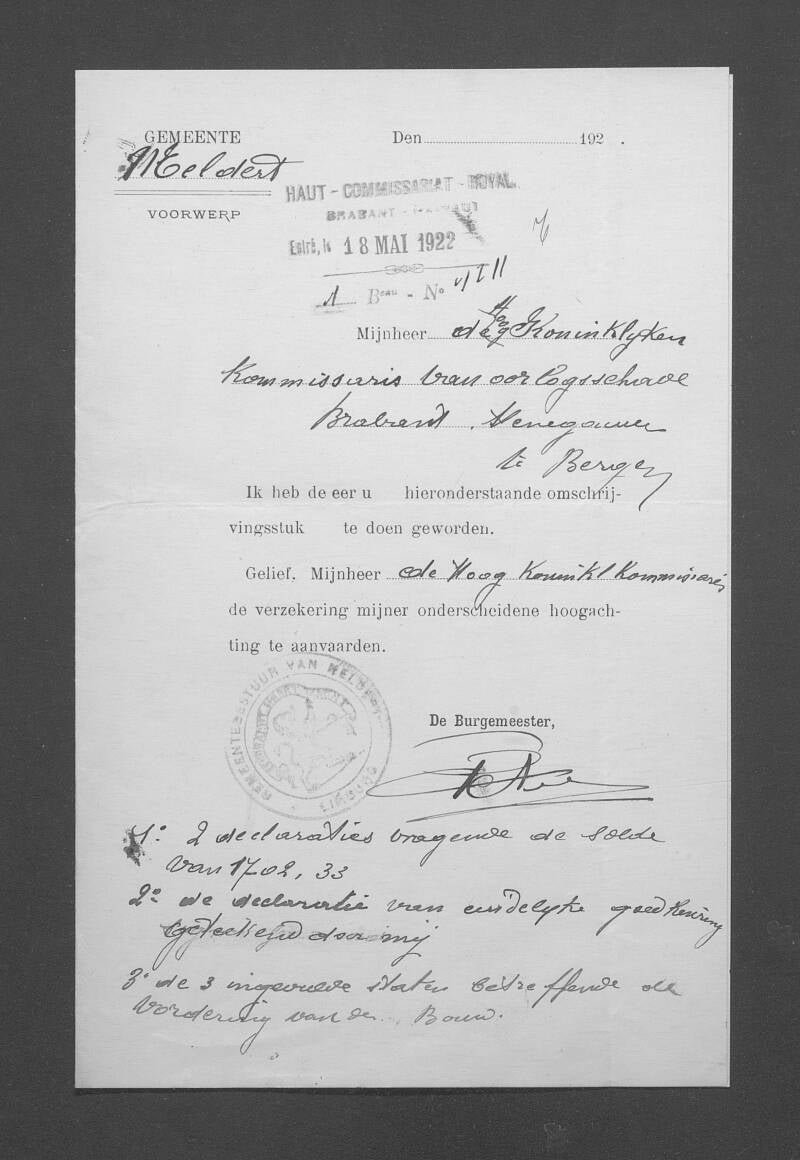 GEMEENTE
Meldert
VOORWERP
Den 192 .
HAUT - COMMISSARIAT - ROYAL
BRABANT - HAINAUT
Entré, le 18 MAI 1922
1 Beau - No
Mijnheer den Hoog Koninklyken
Kommissaris van oorlogsschade
Brabant, Henegouwen
te Bergen
Ik heb de eer u hieronderstaande omschrij-
vingsstuk te doen geworden.
Gelief, Mijnheer de Hoog Koninkl Kommissaris
de verzekering mijner onderscheidene hoogach-
ting te aanvaarden.
GEMEENTEBESTUUR VAN MELDERT
De Burgemeester,
1° 2 declaraties vragende de solde
van 1702,33
2° de declaratie van eindelyke goedkeuring
geteekend door mij
3° de 3 ingevulde staten betreffende de
vordering van den Bouw.